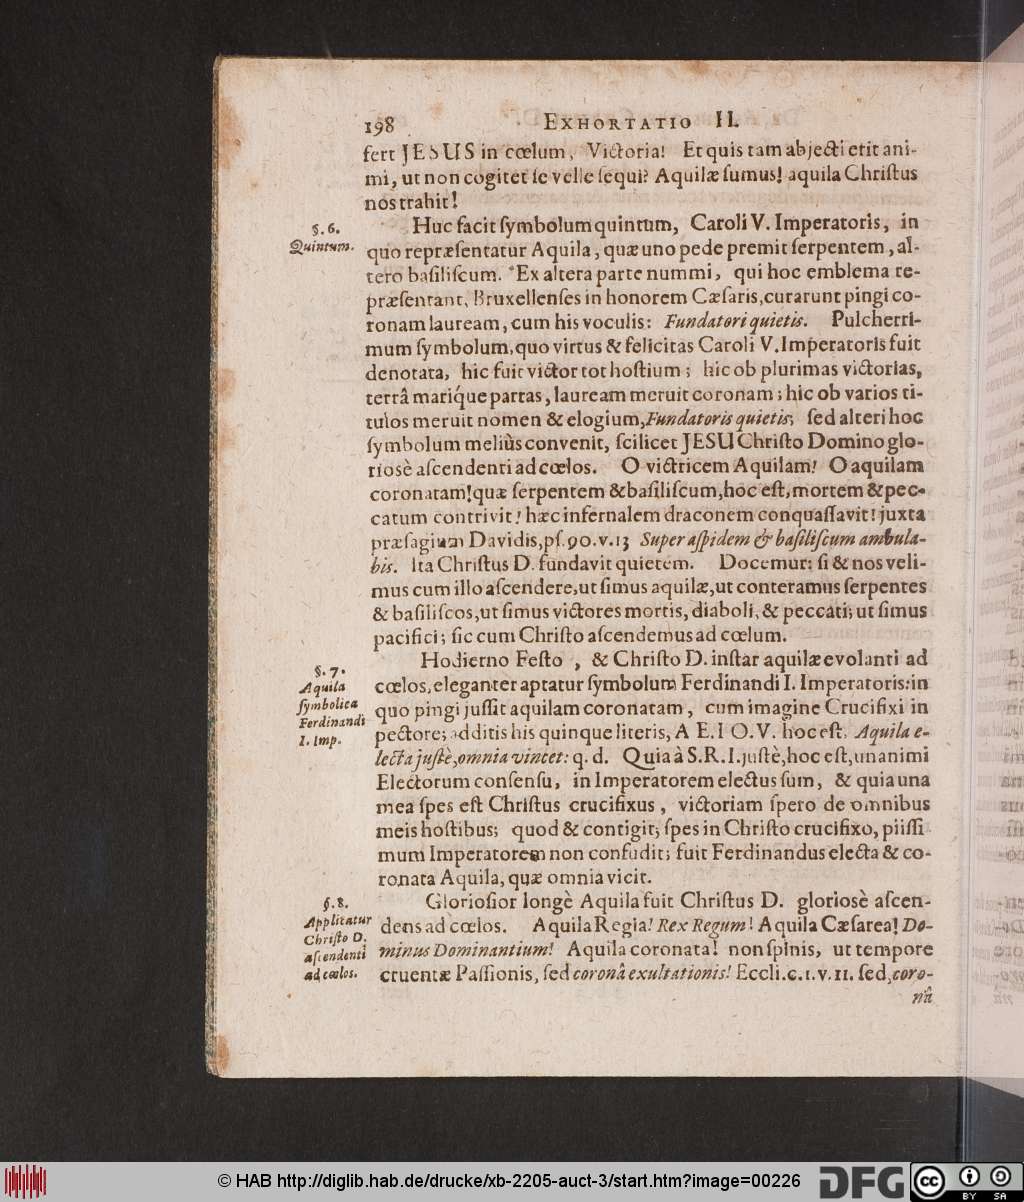 198 EXHORTATIO II.
fert JESUS in cœlum, Victoria! Et quis tam abjecti erit ani-
mi, ut non cogitet ſe velle ſequi? Aquilæ ſumus! aquila Chriſtus
nos trahit!
§. 6.
Quintum.
Huc facit ſymbolum quintum, Caroli V. Imperatoris, in
quo repræſentatur Aquila, quæ uno pede premit ſerpentem, al-
tero baſiliſcum. Ex altera parte nummi, qui hoc emblema re-
præſentant, Bruxellenſes in honorem Cæſaris, curarunt pingi co-
ronam lauream, cum his voculis: Fundatori quietis. Pulcherri-
mum ſymbolum, quo virtus & felicitas Caroli V. Imperatoris fuit
denotata, hic fuit victor tot hoſtium; hic ob plurimas victorias,
terrâ mariq́ue partas, lauream meruit coronam; hic ob varios ti-
tulos meruit nomen & elogium, Fundatoris quietis; ſed alteri hoc
ſymbolum meliùs convenit, ſcilicet JESU Chriſto Domino glo-
riosè aſcendenti ad cœlos. O victricem Aquilam! O aquilam
coronatam! quæ ſerpentem & baſiliſcum, hoc eſt, mortem & pec-
catum contrivit! hæc infernalem draconem conquaſſavit! juxta
præſagium Davidis, pſ. 90. v. 13 Super aſpidem & baſiliſcum ambula-
bis. Ita Chriſtus D. fundavit quietem. Docemur: ſi & nos veli-
mus cum illo aſcendere, ut ſimus aquilæ, ut conteramus ſerpentes
& baſiliſcos, ut ſimus victores mortis, diaboli, & peccati; ut ſimus
pacifici; ſic cum Chriſto aſcendemus ad cœlum.
§. 7.
Aquila
ſymbolica
Ferdinandi
I. Imp.
Hodierno Feſto, & Chriſto D. inſtar aquilæ evolanti ad
cœlos, eleganter aptatur ſymbolum Ferdinandi I. Imperatoris: in
quo pingi juſſit aquilam coronatam, cum imagine Crucifixi in
pectore; additis his quinque literis, A E. I O. V. hoc eſt. Aquila e-
lecta juſtè, omnia vincet: q. d. Quia à S. R. I. juſtè, hoc eſt, unanimi
Electorum conſenſu, in Imperatorem electus ſum, & quia una
mea ſpes eſt Chriſtus crucifixus, victoriam ſpero de omnibus
meis hoſtibus; quod & contigit; ſpes in Chriſto crucifixo, piiſſi
mum Imperatorem non confudit; fuit Ferdinandus electa & co-
ronata Aquila, quæ omnia vicit.
§. 8.
Applicatur
Chriſto D.
aſcendenti
ad cœlos.
Glorioſior longè Aquila fuit Chriſtus D. gloriosè aſcen-
dens ad cœlos. Aquila Regia! Rex Regum! Aquila Cæſarea! Do-
minus Dominantium! Aquila coronata! non ſpinis, ut tempore
cruentæ Paſſionis, ſed coronâ exultationis! Eccli. c. 1. v. 11. ſed, coro-
nâ
© HAB http://diglib.hab.de/drucke/xb-2205-auct-3/start.htm?image=00226
DFG
cc
BY SA